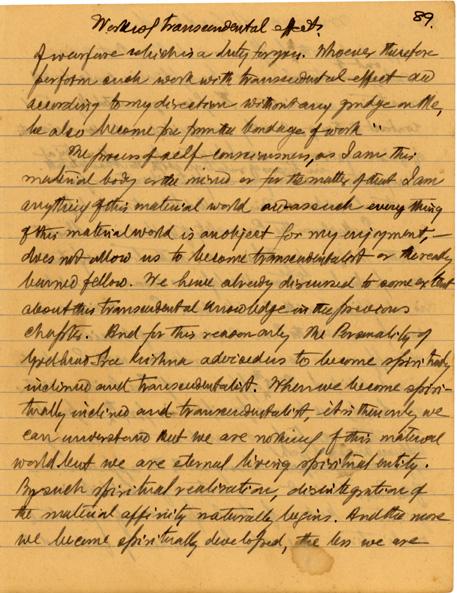 89.
Works of transcendental effects.
of warfare which is a duty for you. Whoever therefore
perform such work with transcendental effect and
according to my direction without any grudge on Me,
he also become free from the bondage of work"
The process of self-consciousness, as I am this
material body or the mind or for the matter of that I am
anything of this material world or as such every thing
of this material world is an object for my enjoyment,—
does not allow us to become transcendentalist or the really
learned fellow. We have already discussed to some extent
about this transcendental knowledge in the previous
chapter. And for this reason only the Personality of
Godhead Sree Krishna advised us to become spiritually
inclined and transcendentalist. When we become spiri-
tually inclined and transcendentalist, it is then only we
can understand that we are nothing of this material
world but we are eternal living spiritual entity.
By such spiritual realisation, disintegration of
the material affinity naturally begins. And the more
we become spiritually developed, the less we are